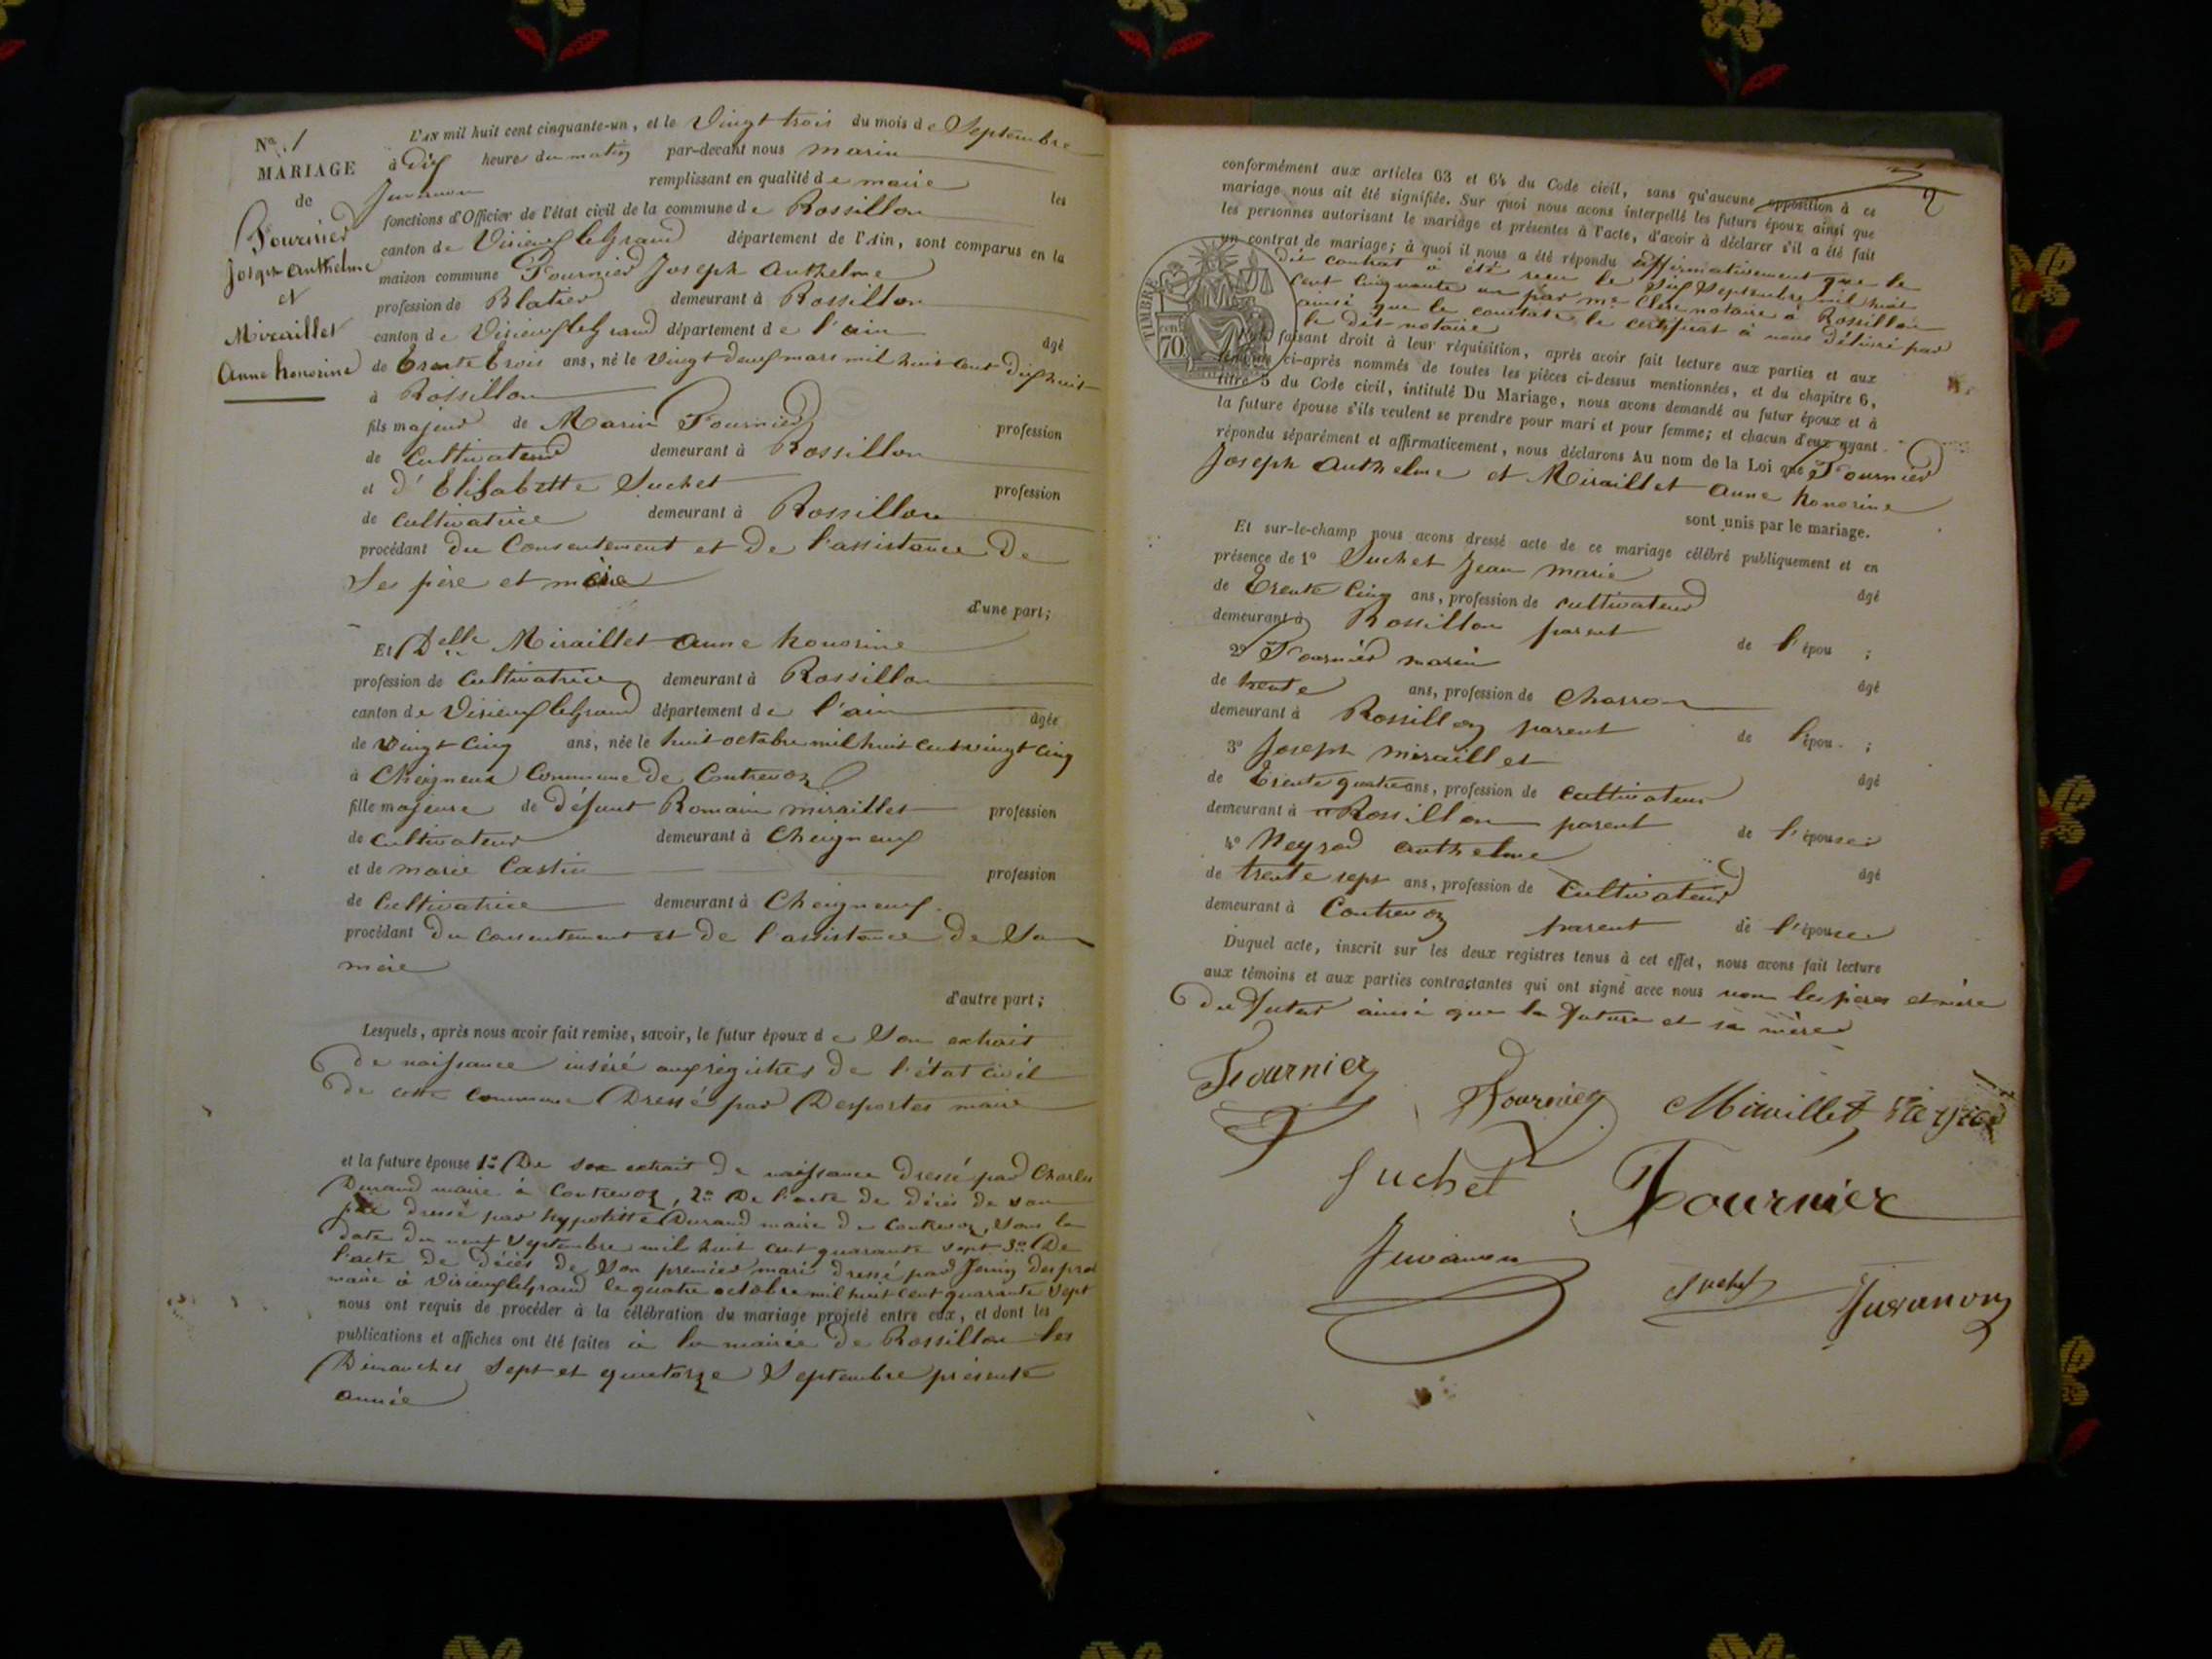 No. 1
MARIAGE
de
Fournier
Joseph Anthelme
et
Miraillet
Anne honorine
L'AN mil huit cent cinquante-un, et le Vingt trois du mois de Septembre
à Dix heures du matin par-devant nous marin
Juvanon remplissant en qualité de maire les
fonctions d'Officier de l'état civil de la commune de Rossillon
canton de Virieux le Grand département de l'Ain, sont comparus en la
maison commune Fournier Joseph Anthelme
profession de Blatier demeurant à Rossillon
canton de Virieux le Grand département de l'ain âgé
de trente trois ans, né le vingt deux mars mil huit cent dix huit
à Rossillon
fils majeur de Marin Fournier profession
de Cultivateur demeurant à Rossillon
et d'Elisabette Suchet profession
de cultivatrice demeurant à Rossillon
procédant du Consentement et de l'assistance de
Ses père et mère
d'une part;
Et Delle Miraillet Anne honorine
profession de Cultivatrice demeurant à Rossillon
canton de Virieux le Grand département de l'ain âgée
de Vingt cinq ans, née le huit octobre mil huit cent vingt cinq
à Cheigneux Commune de Contrevoz
fille majeure de défunt Romain miraillet profession
de Cultivateur demeurant à Cheigneux
et de marie Castin profession
de Cultivatrice demeurant à Cheigneux
procédant du consentement et de l'assistance de Sa
mère
d'autre part;
Lesquels, après nous avoir fait remise, savoir, le futur époux de Son extrait
de naissance inséré aux régistres de l'état civil
de cette Commune Dressé par Desportes maire
et la future épouse 1º De son extrait de naissance dressé par Charles
Durand maire à Contrevoz, 2º De l'acte de décès de son
père dressé par hypolitte Durand maire de Contrevoz, sous la
date du neuf Septembre mil huit cent quarante sept 3º De
l'acte de décès de Son premier mari dressé par
maire à Virieux le Grand le quatre octobre mil huit cent quarante Sept
nous ont requis de procéder à la célébration du mariage projeté entre eux, et dont les
publications et affiches ont été faites à la mairie de Rossillon les
Dimanches Sept et quatorze Septembre présente
année
2
conformément aux articles 63 et 64 du Code civil, sans qu'aucune opposition à ce
mariage nous ait été signifiée. Sur quoi nous avons interpellé les futurs époux ainsi que
les personnes autorisant le mariage et présentes à l'acte, d'avoir à déclarer s'il a été fait
un contrat de mariage; à quoi il nous a été répondu affirmativement que le
dit contrat a été reçu le Dix Septembre mil huit
cent cinquante un par me Clerc notaire à Rossillon
ainsi que le constate le certificat à nous délivré par
le dit notaire
TIMBRE
70
faisant droit à leur réquisition, après avoir fait lecture aux parties et aux
témoins ci-après nommés de toutes les pièces ci-dessus mentionnées, et du chapitre 6,
titre 5 du Code civil, intitulé Du Mariage, nous avons demandé au futur époux et à
la future épouse s'ils veulent se prendre pour mari et pour femme; et chacun d'eux ayant
répondu séparément et affirmativement, nous déclarons Au nom de la Loi que Fournier
Joseph Anthelme et Miraillet Anne honorine
sont unis par le mariage.
Et sur-le-champ nous avons dressé acte de ce mariage célébré publiquement et en
présence de 1º Suchet Jean marie âgé
de Trente Cinq ans, profession de cultivateur
demeurant à Rossillon parent de l'épou ;
2º Fournier marin âgé
de trente ans, profession de Charron
demeurant à Rossillon parent de l'épou ;
3º Joseph miraillet âgé
de Trente quatre ans, profession de cultivateur
demeurant à Rossillon parent de l'épouse
4º Neyrod anthelme âgé
de trente sept ans, profession de Cultivateur
demeurant à Contrevoz parent de l'épouse
Duquel acte, inscrit sur les deux registres tenus à cet effet, nous avons fait lecture
aux témoins et aux parties contractantes qui ont signé avec nous non les pères et mère
du futur ainsi que la future et sa mère
Fournier
Fournier Miraillet
Suchet Fournier
Juvanon
Suchet Juvanon